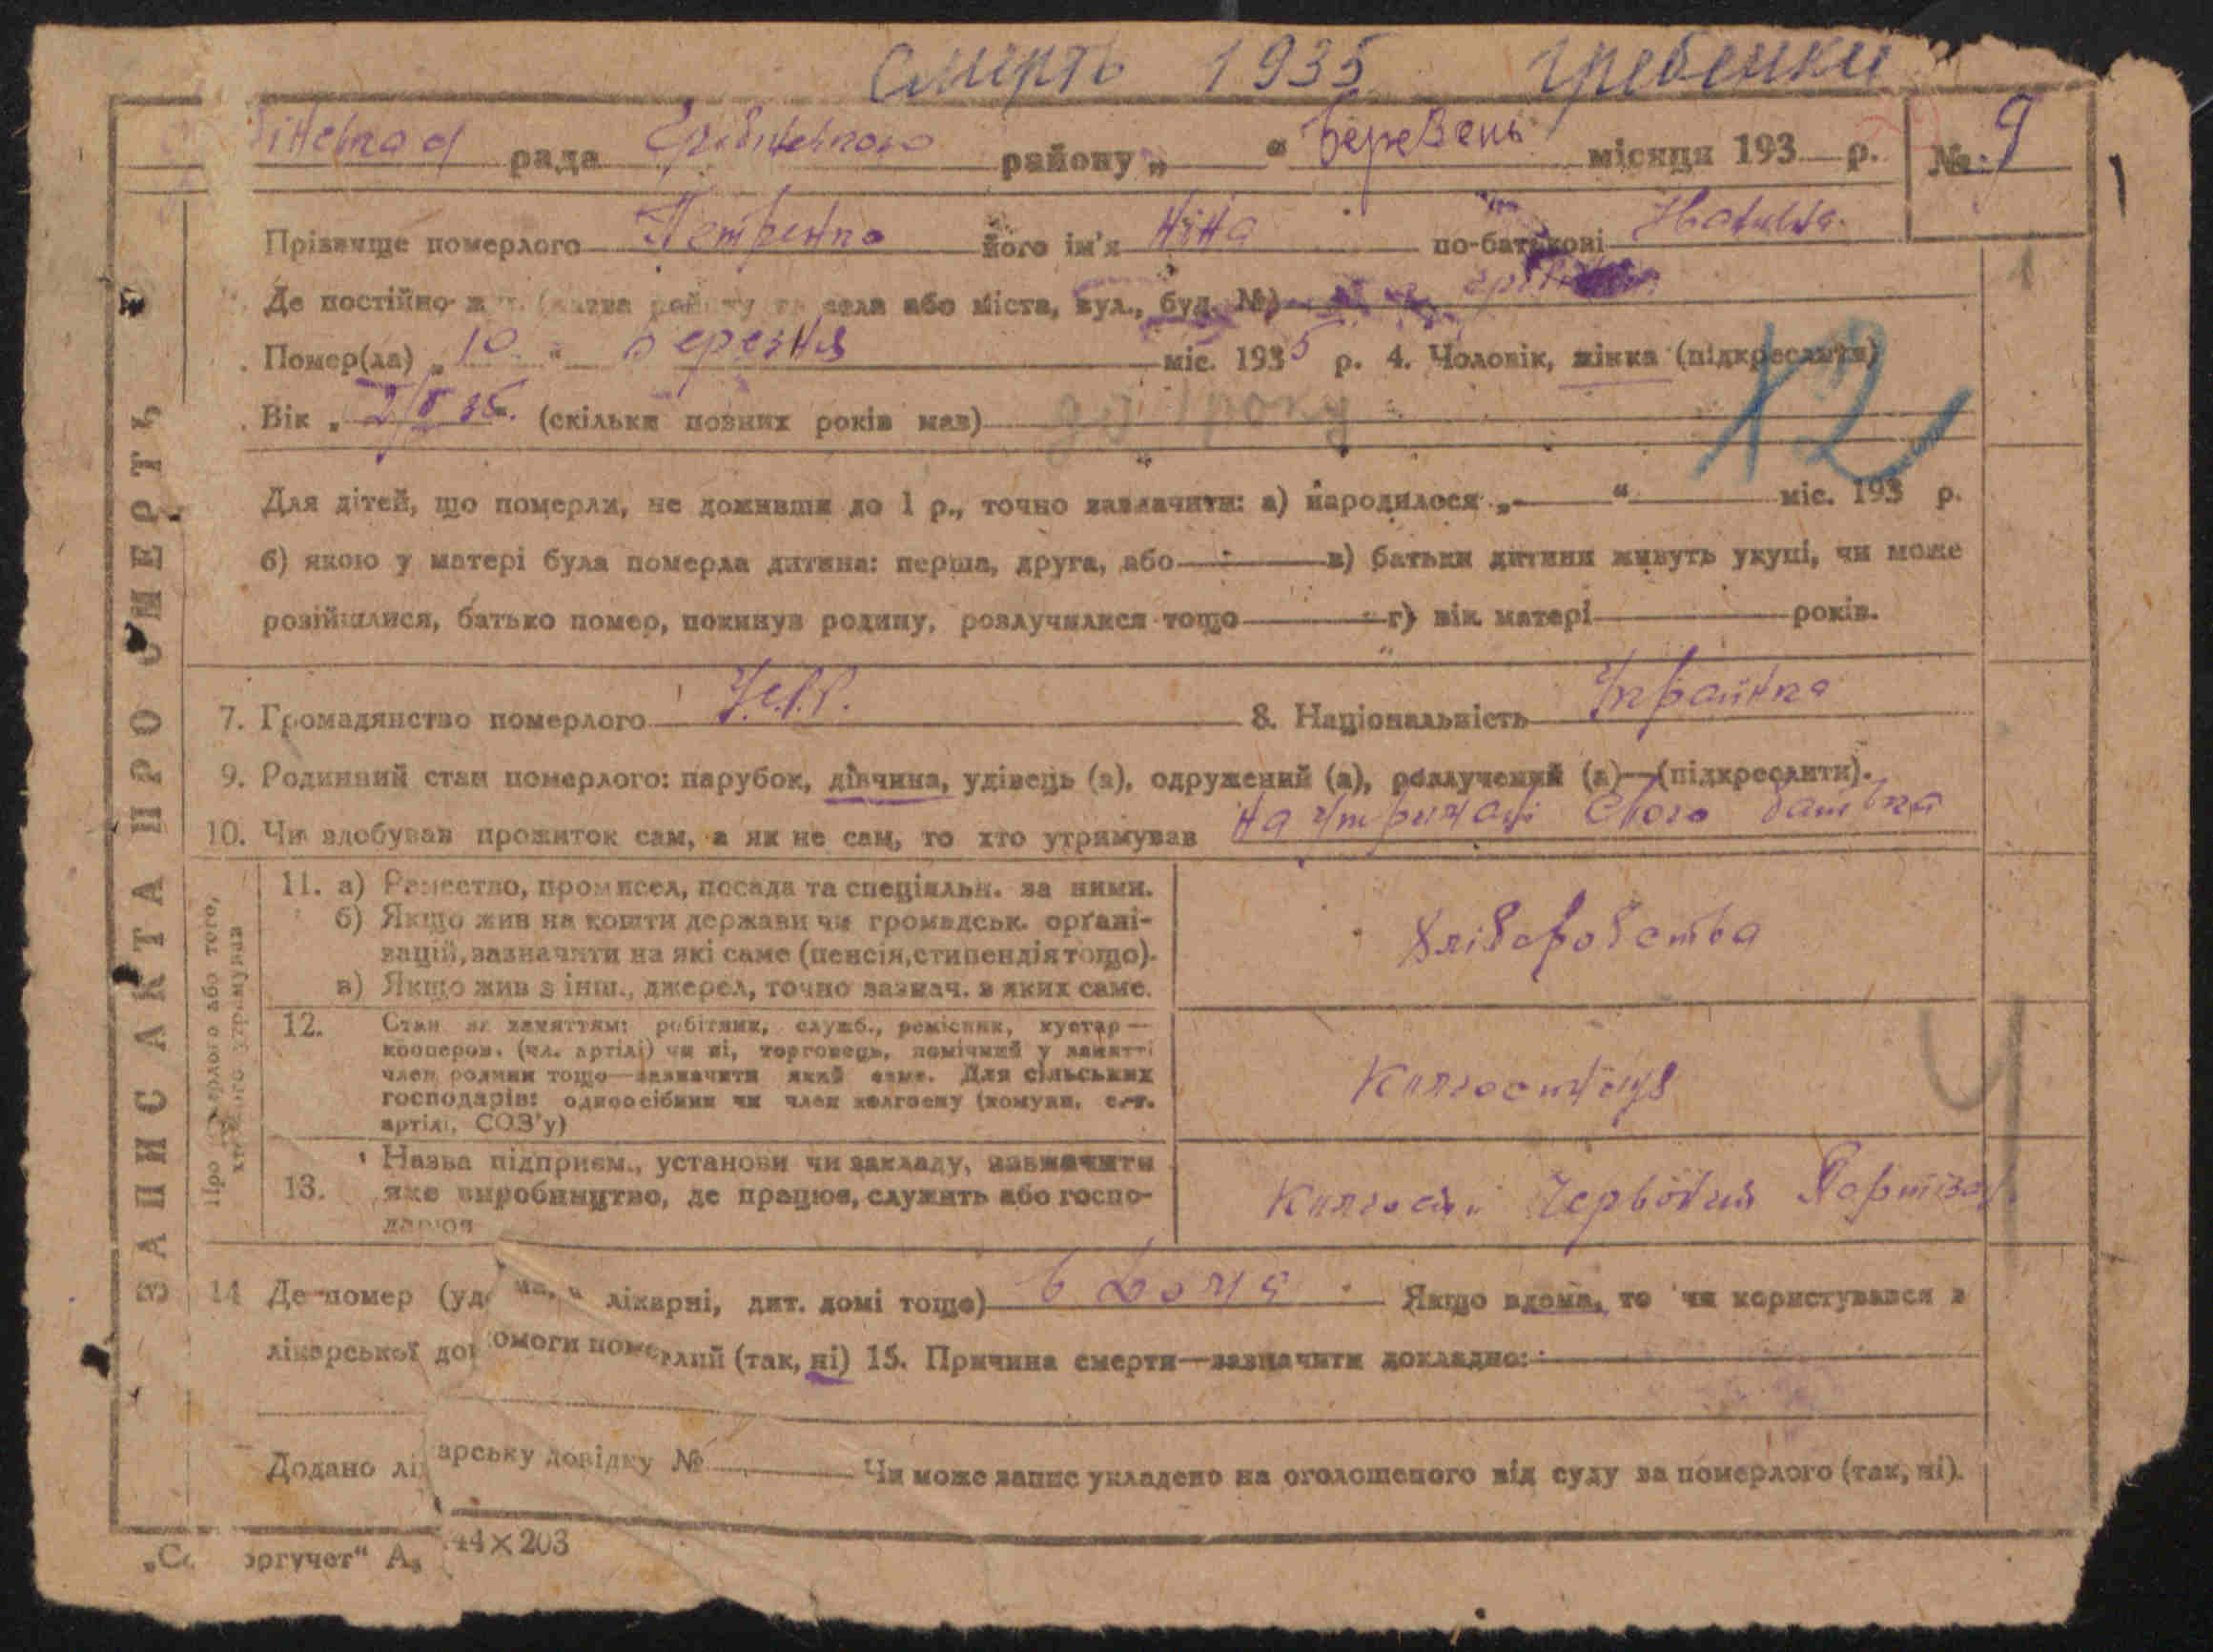 Смерть 1935 Гребенки
рада Гребінківського району „ “ Березень місяця 193 р. № 9
Прізвище померлого Петренко його ім'я Ніна по-батькові
Де постійно жив (назва району та села або міста, вул., буд. №)
Помер(ла) „ 10 “ березня міс. 1935 р. 4. Чоловік, жінка (підкреслити)
Вік „ (скільки повних років мав) до 1 року
Для дітей, що померли, не доживши до 1 р., точно зазначити: а) народилося „ “ міс. 193 р.
б) якою у матері була померла дитина: перша, друга, або в) батьки дитини живуть укупі, чи може
розійшлися, батько помер, покинув родину, розлучилися тощо г) вік матері років.
7. Громадянство померлого У.С.Р.Р. 8. Національність Українка
9. Родинний стан померлого: парубок, дівчина, удівець (а), одружений (а), розлучений (а)—(підкреслити).
10. Чи здобував прожиток сам, а як не сам, то хто утримував на утримані свого батька
ЗАПИС АКТА ПРО СМЕРТЬ
Про померлого або того, хто його утримував
11. а) Ремество, промисел, посада та спеціяльн. за ними.
б) Якщо жив на кошти держави чи громадськ. орґані-
зацій, зазначити на які саме (пенсія, стипендія тощо).
в) Якщо жив з інш., джерел, точно зазнач. з яких саме.
Хліборобства
12. Стан за заняттям: робітник, служб., ремісник, кустар—
кооперов. (чл. артілі) чи ні, торговець, помічний у занятті
член родини тощо—зазначити який саме. Для сільських
господарів: одноосібник чи член колгоспу (комуни, с.-г.
артілі, СОЗ'у)
13. Назва підприєм., установи чи закладу, зазначити
яке виробництво, де працює, служить або госпо-
дарює
Червоний Партизан
14 Де помер (удома, в лікарні, дит. домі тощо) в дома Якщо вдома, то чи користувався з
лікарської допомоги померлий (так, ні) 15. Причина смерти—зазначити докладно:
Додано лікарську довідку № Чи може запис укладено на оголошеного від суду за померлого (так, ні).
44×203